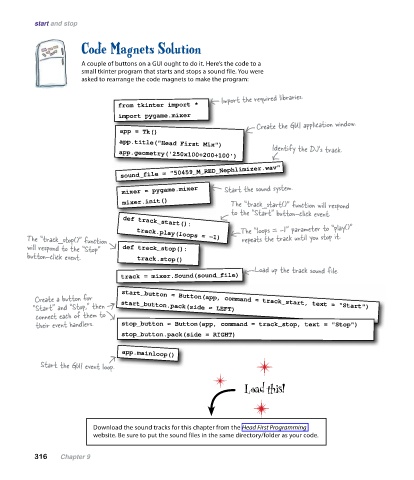 start and stop
Code Magnets Solution
A couple of buttons on a GUI ought to do it. Here's the code to a
small tkinter program that starts and stops a sound file. You were
asked to rearrange the code magnets to make the program:
from tkinter import *
import pygame.mixer
Import the required libraries.
app = Tk()
app.title("Head First Mix")
app.geometry('250x100+200+100')
Create the GUI application window.
Identify the DJ's track.
sound_file = "50459_M_RED_Nephlimizer.wav"
mixer = pygame.mixer
mixer.init()
Start the sound system.
The "track_start()" function will respond
to the "Start" button-click event.
def track_start():
track.play(loops = -1)
The "loops = -1" parameter to "play()"
repeats the track until you stop it.
The "track_stop()" function
will respond to the "Stop"
button-click event.
def track_stop():
track.stop()
Load up the track sound file.
track = mixer.Sound(sound_file)
Create a button for
"Start" and "Stop," then
connect each of them to
their event handlers.
start_button = Button(app, command = track_start, text = "Start")
start_button.pack(side = LEFT)
stop_button = Button(app, command = track_stop, text = "Stop")
stop_button.pack(side = RIGHT)
app.mainloop()
Start the GUI event loop.
Load this!
Download the sound tracks for this chapter from the Head First Programming
website. Be sure to put the sound files in the same directory/folder as your code.
316 Chapter 9